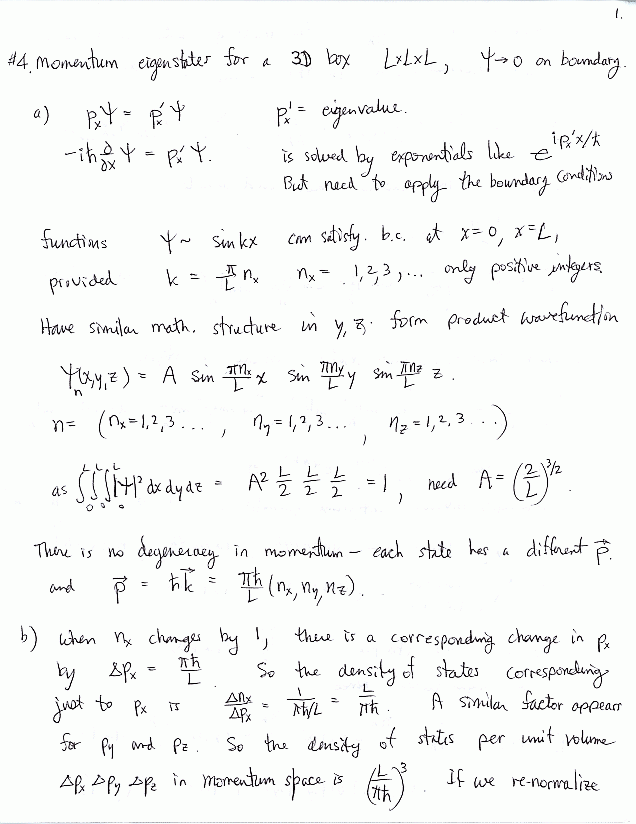 1.
#4. Momentum eigenstates for a 3D box L×L×L, ψ→0 on boundary.
a) pₓψ = pₓ'ψ pₓ' = eigenvalue.
-iħ ∂/∂x ψ = pₓ' ψ. is solved by exponentials like e^{ipₓ'x/ħ}
But need to apply the boundary conditions
functions ψ ~ sin kx can satisfy. b.c. at x=0, x=L,
provided k = π/L nₓ nₓ = 1,2,3,... only positive integers.
Have similar math. structure in y, z. form product wavefunction
ψₙ(x,y,z) = A sin πnₓ/L x sin πn_y/L y sin πn_z/L z.
n = (nₓ=1,2,3..., n_y=1,2,3..., n_z=1,2,3...)
as ∫₀ᴸ∫₀ᴸ∫₀ᴸ|ψ|² dx dy dz = A² L/2 L/2 L/2 = 1, need A = (2/L)^{3/2}.
There is no degeneracy in momentum – each state has a different p⃗.
and p⃗ = ħk⃗ = πħ/L (nₓ, n_y, n_z).
b) When nₓ changes by 1, there is a corresponding change in pₓ
by Δpₓ = πħ/L. So the density of states corresponding
just to pₓ is Δnₓ/Δpₓ = 1/(πħ/L) = L/πħ. A similar factor appears
for p_y and p_z. So the density of states per unit volume
Δpₓ Δp_y Δp_z in momentum space is (L/πħ)³. If we re-normalize